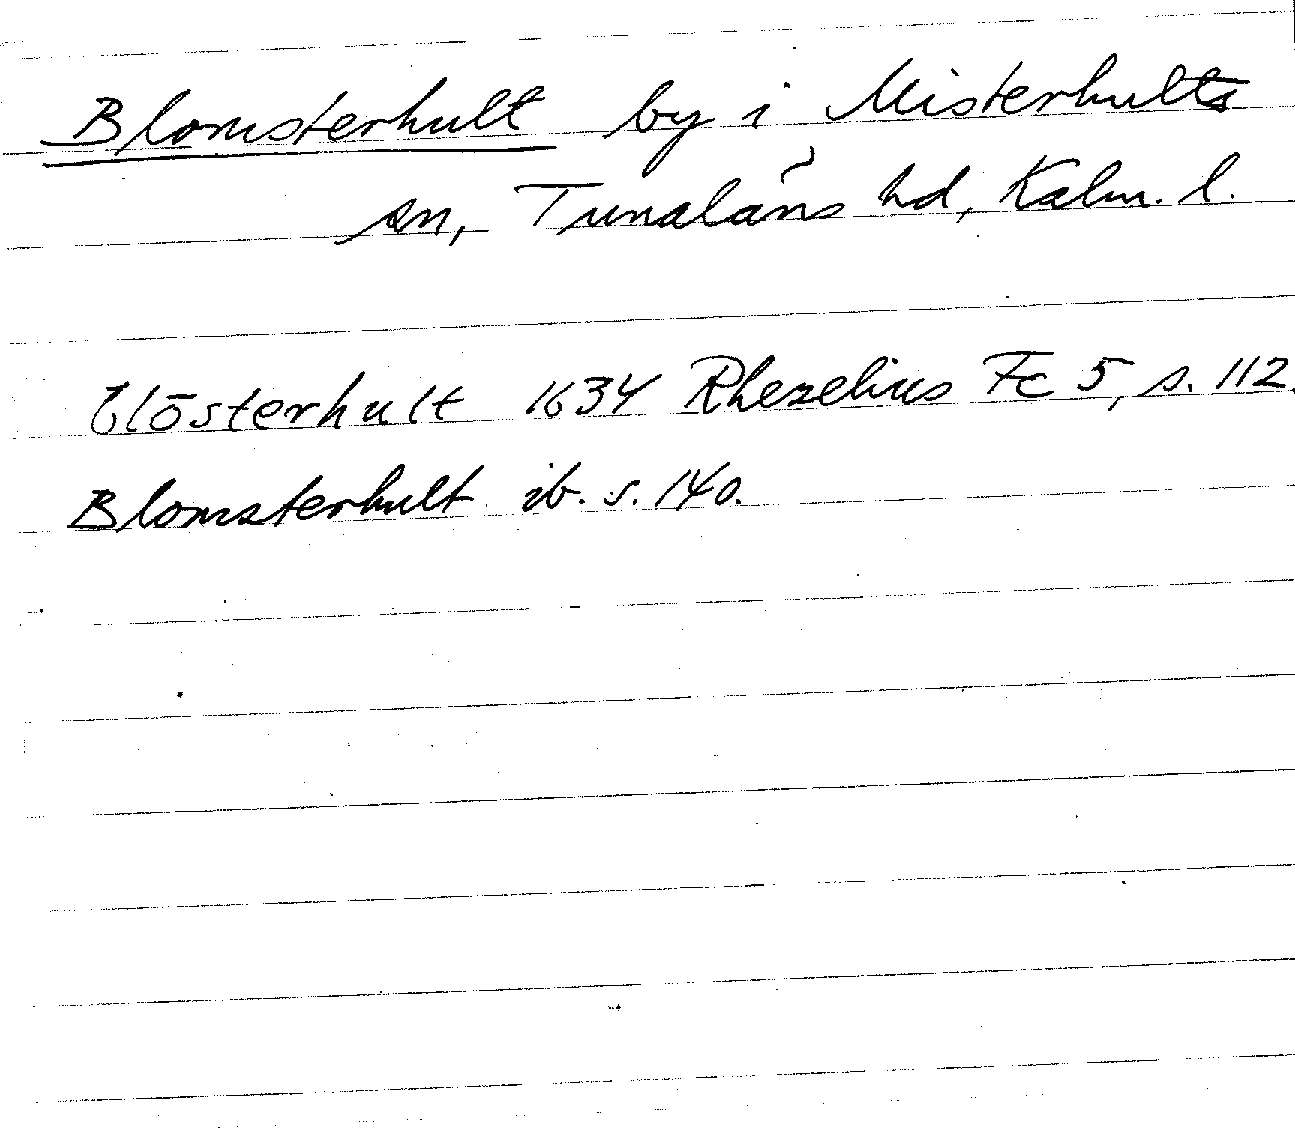 Blomsterhult by i Misterhults
sn, Tunaläns hd, Kalm. l.
Blōsterhult 1634 Rhezelius Fc 5, s. 112.
Blomsterhult ib. s. 140.